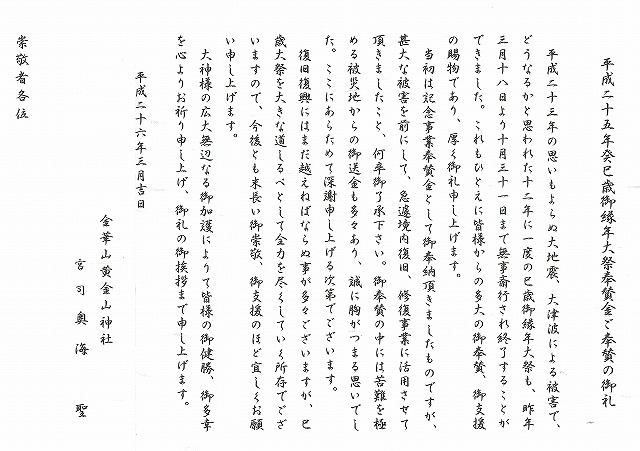 平成二十五年癸巳歳御縁年大祭奉賛金ご奉賛の御礼
平成二十三年の思いもよらぬ大地震、大津波による被害で、
どうなるかと思われた十二年に一度の巳歳御縁年大祭も、昨年
三月十八日より十月三十一日まで無事斎行され終了することが
できました。これもひとえに皆様からの多大の御奉賛、御支援
の賜物であり、厚く御礼申し上げます。
当初は記念事業奉賛金として御奉納頂きましたものですが、
甚大な被害を前にして、急遽境内復旧、修復事業に活用させて
頂きましたこと、何卒御了承下さい。御奉賛の中には苦難を極
める被災地からの御送金も多々あり、誠に胸がつまる思いでし
た。ここにあらためて深謝申し上げる次第でございます。
復旧復興にはまだ越えねばならぬ事が多々ございますが、巳
歳大祭を大きな道しるべとして全力を尽くしていく所存でござ
いますので、今後とも末長い御崇敬、御支援のほど宜しくお願
い申し上げます。
大神様の広大無辺なる御加護によりて皆様の御健勝、御多幸
を心よりお祈り申し上げ、御礼の御挨拶まで申し上げます。
平成二十六年三月吉日
金華山黄金山神社
宮司奥海 聖
崇敬者各位